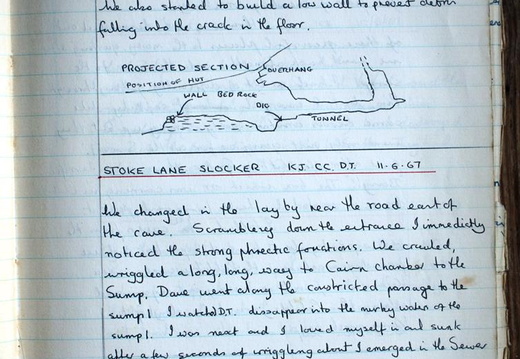 We also started to build a low wall to prevent debris
falling into the crack in the floor.
PROJECTED SECTION
OVERHANG
POSITION OF HUT
WALL BED ROCK
DIG
TUNNEL
STOKE LANE SLOCKER KJ CC. D.T. 11-6-67
We changed in the lay by near the road east of
the cave. Scrambling down the entrance I immedictly
noticed the strong phrectic formations. We crawled,
wriggled a long, long, way to Cairn chamber to the
Sump. Dave went along the constricted passage to the
sump 1. I watched D.T. dissappear into the murky water of the
sump 1. I was next and I loved myself in and sunk
after a few seconds of wriggleng about I emerged in the Sewer